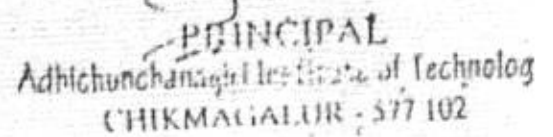 PRINCIPAL
Adhichunchanagiri Institute of Technolog
CHIKMAGALUR - 577 102